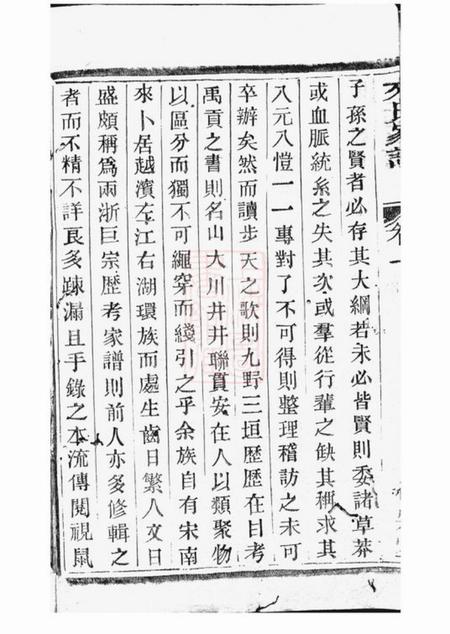 氏家譜
卷一
子孫之賢者必存其大綱若未必皆賢則委諸草莽
或血脈統系之失其次或羣從行輩之缺其稱求其
八元八愷一一專對了不可得則整理稽訪之未可
卒辦矣然而讀步天之歌則九野三垣歷歷在目考
禹貢之書則名山大川井井聯貫安在人以類聚物
以區分而獨不可繩穿而綫引之乎余族自有宋南
來卜居越濱左江右湖環族而處生齒日繁人文日
盛頗稱爲兩浙巨宗歷考家譜則前人亦多修輯之
者而不精不詳良多踈漏且手錄之本流傳閱視鼠